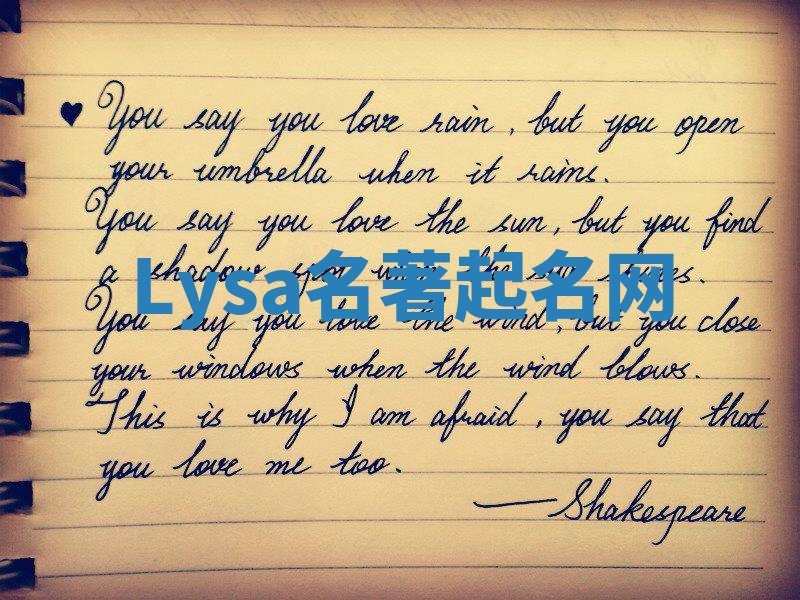 ♥ You say you love rain, but you open
your umbrella when it rains.
You say you love the sun, but you find
a shadow spot when the sun shines.
Lysa名著起名网
You say you love the wind, but you close
your windows when the wind blows.
This is why I am afraid, you say that
you love me too.
—Shakespeare